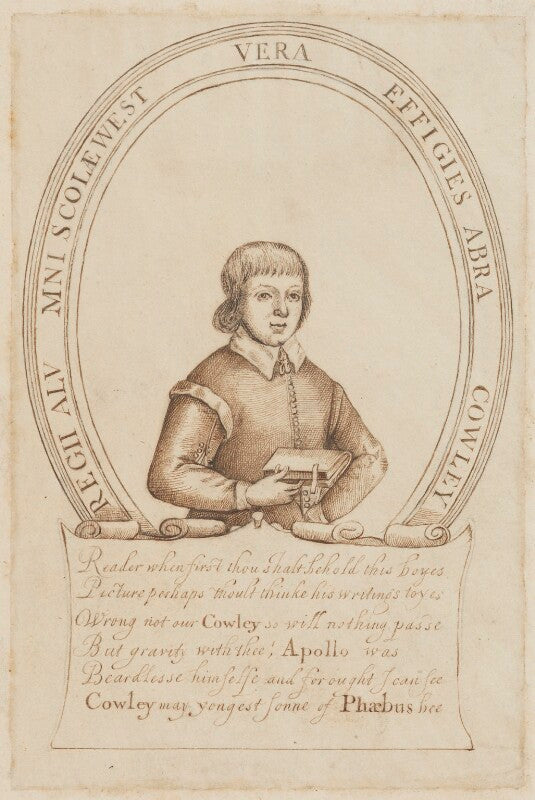 VERA EFFIGIES ABRA COWLEY
REGII ALV MNI SCOLÆ WEST
Reader when first thou shalt behold this boyes
Picture perhaps thoult thinke his writings toyes
Wrong not our Cowley so will nothing passe
But gravity with thee; Apollo was
Beardlesse himselfe and for ought I can see
Cowley may yongest sonne of Phæbus bee